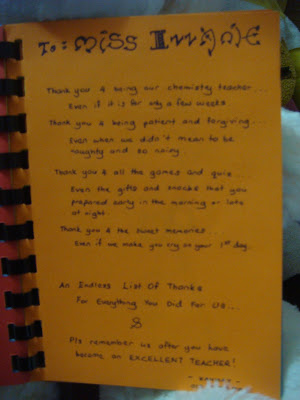 To: Miss
Thank you 4 being our chemistry teacher...
Even if it is for only a few weeks
Thank you 4 being patient and forgiving...
Even when we didn't mean to be
naughty and so noisy.
Thank you 4 all the games and quiz...
Even the gifts and snacks that you
prepared early in the morning or late
at night.
Thank you 4 the sweet memories...
Even if we make you cry on your 1st day.
An Endless List Of Thanks
For Everything You Did For Us...
&
Pls remember us after you have
become an EXCELLENT TEACHER!